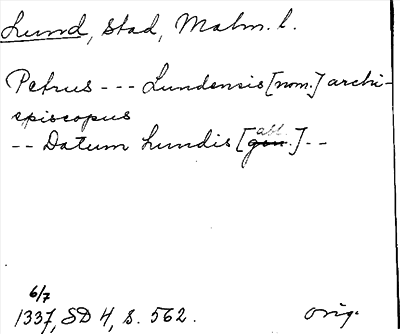 Lund, Stad, Malm. l.
Petrus --- Lundensis [nom.] archi-
episcopus
-- Datum Lundis [gen. abl.] --
6/7
1337, SD 4, s. 562. orig.